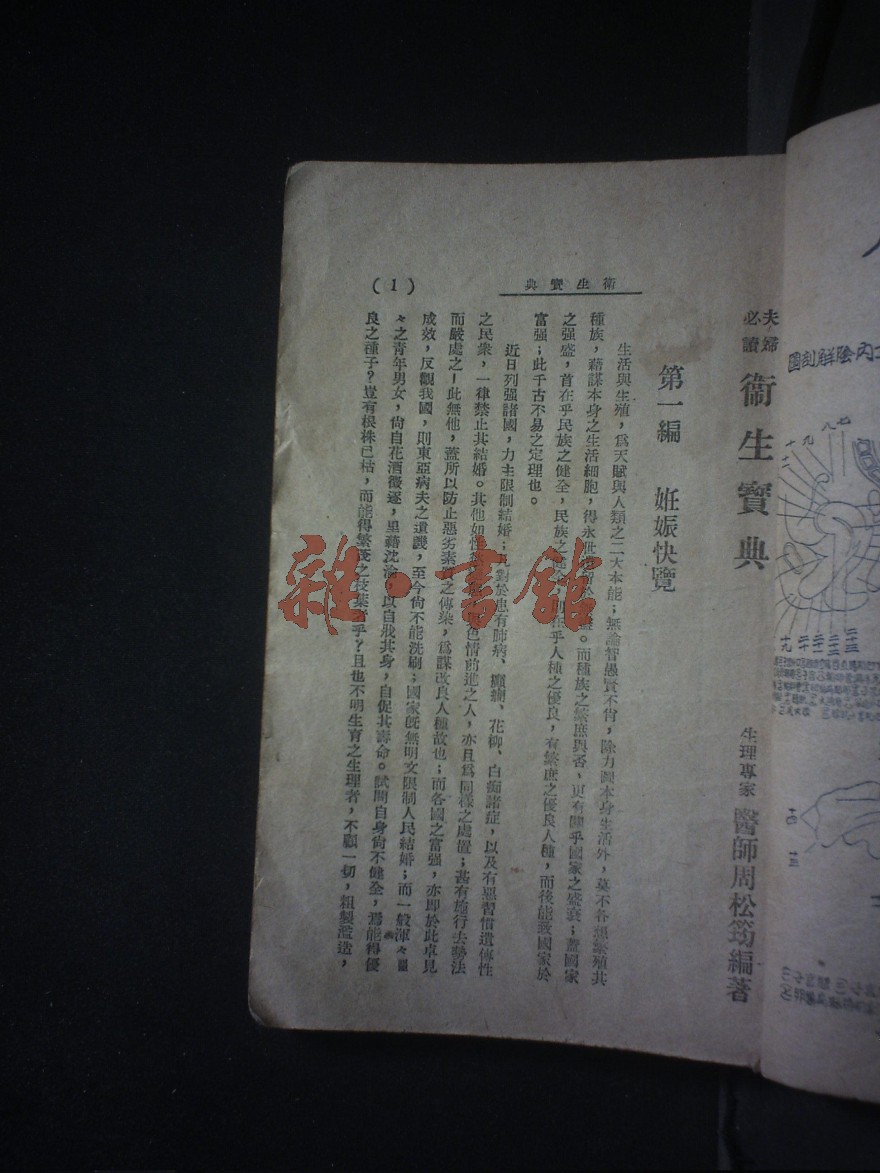 夫婦必讀 衞生寶典
生理專家 醫師周松筠編著
第一編 妊娠快覽
生活與生殖，爲天賦與人類之二大本能；無論智愚賢不肖，除力圖本身生活外，莫不各思繁殖其
種族，藉謀本身之生活細胞，得永世。而種族之繁庶與否，更有關乎國家之盛衰；蓋國家
之强盛，首在乎民族之健全，民族之乎人種之優良，有繁庶之優良人種，而後能致國家於
富强；此千古不易之定理也。
近日列强諸國，力主限制結婚；凡對於患有肺病、癲癇、花柳、白痴諸症，以及有惡習慣遺傳性
之民衆，一律禁止其結婚。其他如性色情前進之人，亦且爲同樣之處置；甚有施行去勢法
而嚴處之！此無他，蓋所以防止惡劣素之傳染，爲謀改良人種故也；而各國之富强，亦即於此卓見
成效，反觀我國，則東亞病夫之遺譏，至今尙不能洗刷；國家旣無明文限制人民結婚；而一般渾々噩
々之青年男女，尙自花酒徵逐，黑藉沈淪，以自戕其身，自促其壽命。試問自身尙不健全，焉能得優
良之種子？豈有根株已枯，而能得繁茂之枝葉者乎？且也不明生育之生理者，不顧一切，粗製濫造，
衛生寶典
(1)
內陰解剖圖